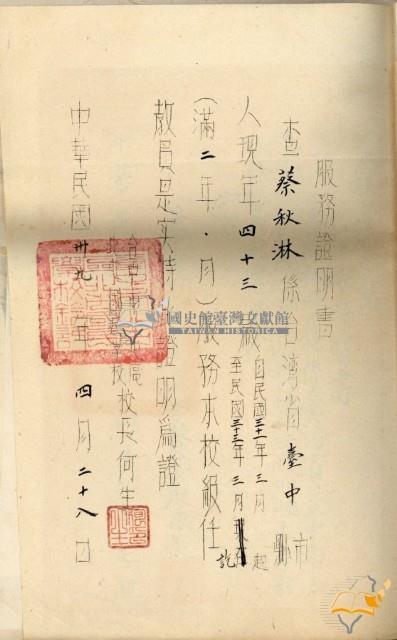 服務證明書
查蔡秋淋係台湾省臺中縣市
人現年四十三歲自民國三十一年三月起
至民國三十三年三月訖
(滿二年.月)服務本校級任
教員是实特 證明爲證
國民學校校長何生
中華民國卅九年四月二十八日
國史館臺灣文獻館
TAIWAN HISTORICA